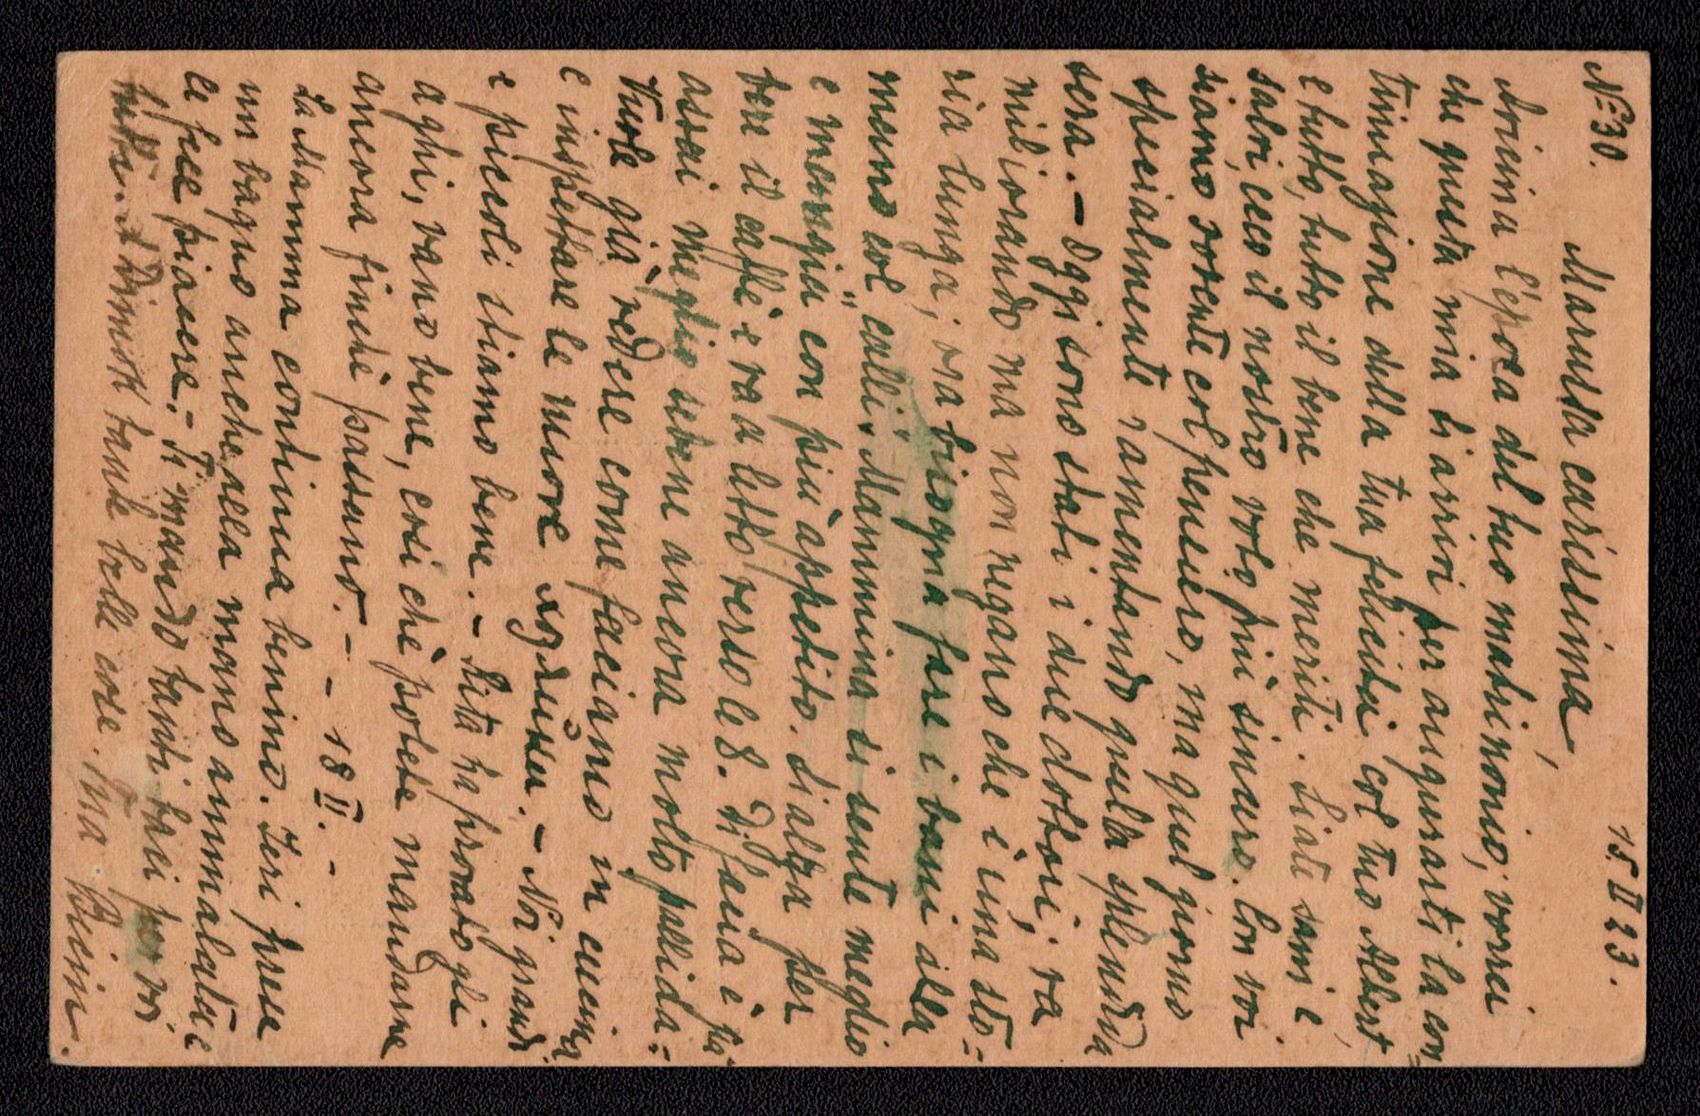 Nº 30. 15 II 23.
Marussa carissima,
Avicina l'epoca del tuo matrimonio, vorrei
che questa mia ti arrivi per augurarti la con=
tinuazione della tua felicità col tuo Albert
e tutto, tutto il bene che meriti. Siate sani e
salvi, ecco il nostro voto più sincero. Con voi
siamo sovente col pensiero, ma quel giorno
specialmente ramentando quela splendida
sera. – Oggi sono stati i due dottori; va
miliorando ma non negano che è una sto=
ria lunga; ora bisogna fare i bagni alla
meno col "calli". Mammina si sente meglio
e mangia con più appetito. Si alza per
bere il caffè e va a letto verso le 8. Di facia è già
assai meglio sebene ancora molto pallida.=
Vuole già vedere come faciamo in cucina
e inspettare le nuove . – Noi grandi
e piccoli stiamo bene. – Rita ha provato gli
aghi, vano bene, così che potete mandarne
ancora finchè passano. – – 18 II. –
La Mamma continua benino. Ieri prese
un bagno anche alla mano ammalata e
le fece piacere. – Ti mando tanti baci per voi
tutti. A Dimok tante belle cose. tua